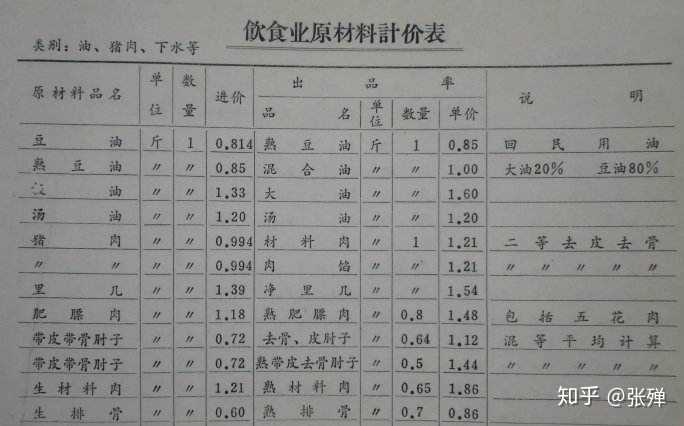 飲食业原材料計价表
类别：油、猪肉、下水等
原材料品名 单位 数量 进价 出品率 说明
品名 单位 数量 单价
豆油 斤 1 0.814 熟豆油 斤 1 0.85 回民用油
熟豆油 〃 〃 0.85 混合油 〃 〃 1.00 大油20% 豆油80%
油 〃 〃 1.33 大油 〃 〃 1.60
汤油 〃 〃 1.20 汤油 〃 〃 1.20
猪肉 〃 〃 0.994 材料肉 〃 1 1.21 二等去皮去骨
〃 〃 〃 〃 0.994 肉馅 〃 〃 1.21 〃 〃 〃 〃 〃 〃
里几 〃 〃 1.39 净里几 〃 〃 1.54
肥膘肉 〃 〃 1.18 熟肥膘肉 〃 0.8 1.48 包括五花肉
带皮带骨肘子 〃 〃 0.72 去骨、皮肘子 〃 0.64 1.12 混等平均计算
带皮带骨肘子 〃 〃 0.72 熟带皮去骨肘子 〃 0.5 1.44 〃 〃 〃 〃 〃 〃
生材料肉 〃 〃 1.21 熟材料肉 〃 0.65 1.86
生排骨 〃 〃 0.60 熟排骨 〃 0.7 0.86
知乎 @张殚